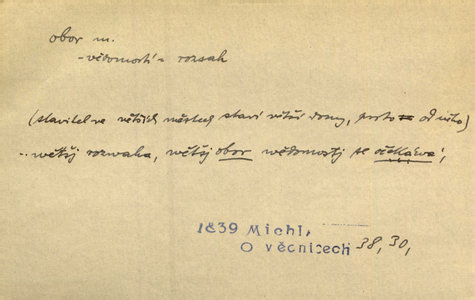 obor m.
-vědomostí = rozsah
(stavitel ve větších městech staví větší domy, proto od něho)
.. wětšj rozwaha, wětšj obor wědomostj se očekáwá,
1839 Michl,
O věcnicech 38, 30,